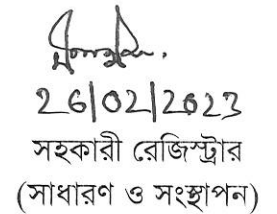 26/02/2023
সহকারী রেজিস্ট্রার
(সাধারণ ও সংস্থাপন)